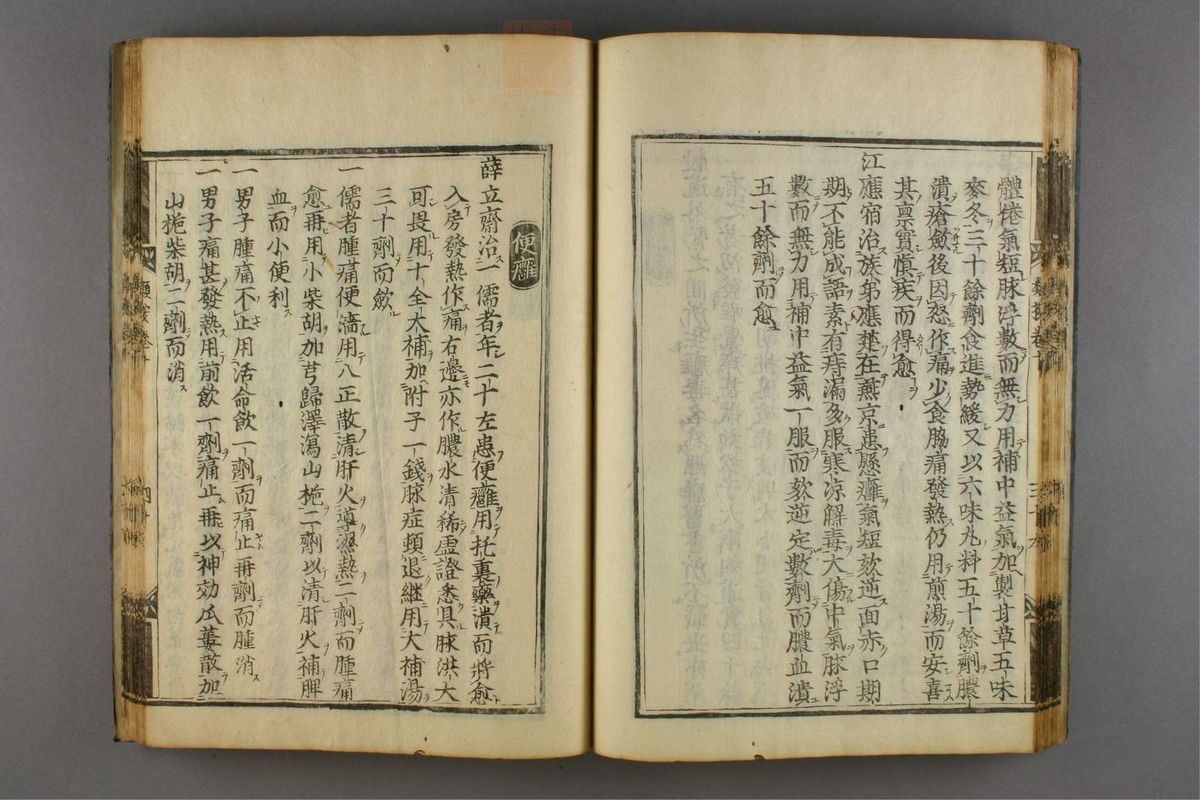 體倦氣短脉浮數而無力用補中益氣加製甘草五味
麥冬三十餘劑食進勢緩又以六味丸料五十餘劑膿
潰瘡斂後因怒作痛少食脇痛發熱仍用前湯而安喜
其禀實慎疾而得愈
江應宿治族弟應楚在燕京患懸癰氣短欬逆面赤口期
期不能成語素有痔漏多服寒凉解毒大傷中氣脉浮
數而無力用補中益氣一服而欬逆定數劑而膿血潰
五十餘劑而愈
便癰
薛立齋治一儒者年二十左患便癰用托裏藥潰而將愈
入房發熱作痛右邊亦作膿水清稀虚證悉具脉洪大
可畏用十全大補加附子一錢脉症頓退繼用大補湯
三十劑而歛
一儒者腫痛便濇用八正散清肝火導濕熱二劑而腫痛
愈再用小柴胡加芎歸澤瀉山梔二劑以清肝火補脾
血而小便利
一男子腫痛不止用活命飲一劑而痛止再劑而腫消
一男子痛甚發熱用前飲一劑痛止再以神効瓜蔞散加
山梔柴胡二劑而消